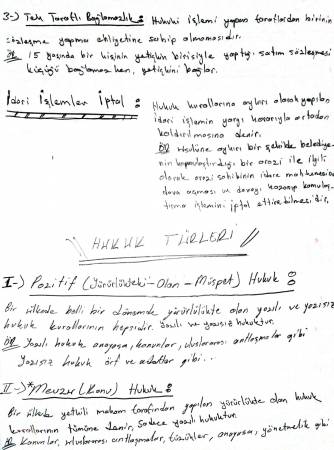 3-) Tek Taraflı Bağlamazlık : Hukuki işlemi yapan taraflardan birinin
sözleşme yapma ehliyetine sahip olmamasıdır.
ÖR 15 yaşında bir kişinin yetişkin birisiyle yaptığı satım sözleşmesi
küçüğü bağlamaz ken, yetişkini bağlar.
İdari İşlemler İptal : Hukuk kurallarına aykırı olarak yapılan
idari işlemin yargı kararıyla ortadan
kaldırılmasına denir.
ÖR Usulüne aykırı bir şekilde belediye-
nin kamulaştırdığı bir arazi ile ilgili
olarak arazi sahibinin idare mahkemesine
dava açması ve davayı kazanıp kamulaş-
tırma işlemini iptal ettirebilmesidir.
HUKUK TÜRLERİ
I-) Pozitif (Yürürlükteki - Olan - Müspet) Hukuk :
Bir ülkede belli bir dönemde yürürlükte olan yazılı ve yazısız
hukuk kurallarının hepsidir. Yazılı ve yazısız hukuktur.
ÖR Yazılı hukuk anayasa, kanunlar, uluslararası antlaşmalar gibi
Yazısız hukuk örf ve adetler gibi..
II-) *Mevzu (Konu) Hukuk :
Bir ülkede yetkili makam tarafından yapılan yürürlükte olan hukuk
kurallarının tümüne denir, sadece yazılı hukuktur.
ÖR Kanunlar, uluslararası antlaşmalar, tüzükler, anayasa, yönetmelik gibi